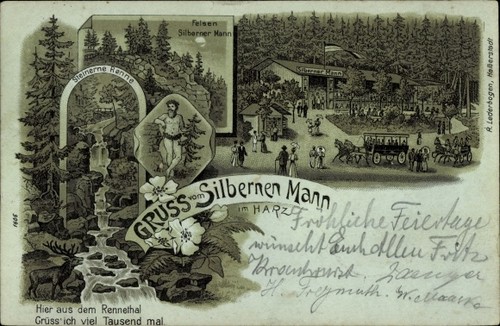 Felsen
Silberner Mann
Steinerne Renne
Silberner Mann
A. Lederbogen, Halberstadt
GRUSS vom Silbernen Mann
im HARZ
Fröhliche Feiertage
wünscht Euch Allen Fritz
Hier aus dem Rennethal
Grüss' ich viel Tausend mal.